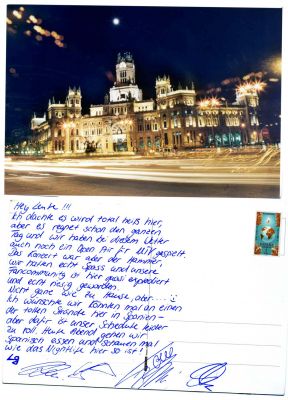 Hey Leute !!!
Ich dachte es wird total heiß hier,
aber es regnet schon den ganzen
Tag und wir haben bei diesem Wetter
auch noch ein Open Air für MTV gespielt.
Das Konzert war aber der Hammer,
wir hatten echt Spass und unsere
Fancommunity ist hier quasi explodiert
und echt riesig geworden.
Nicht ganz wie zu Hause, aber.....ü
Ich wünschte wir könnten mal an einen
der tollen Strände hier in Spanien -
aber dafür ist unser Schedule leider
zu voll. Heute Abend gehen wir
Spanisch essen und schauen mal
wie das Nightlife hier so ist!
Lg